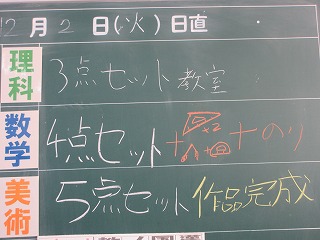 12月2日(火)日直
理科 3点セット 教室
数学 4点セット++のり
美術 5点セット 作品完成